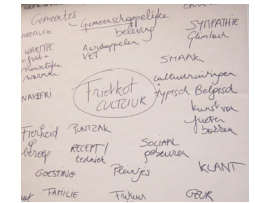 Gemeentes
Gemeenschappelijke
beleving
SYMPATHIE
Glimlach
WARMTE
Aardappelen
VET
SMAAK
NAVEFRI
Frietkot
CULTUUR
cultuuruitingen
typisch Belgisch
kunst van
frieten
bakken
Fierheid
op
beroep
PUNTZAK
RECEPT /
techniek
SOCIAAL
gebeuren
GOESTING
Pleintjes
KLANT
FAMILIE
Frituur
GEUR